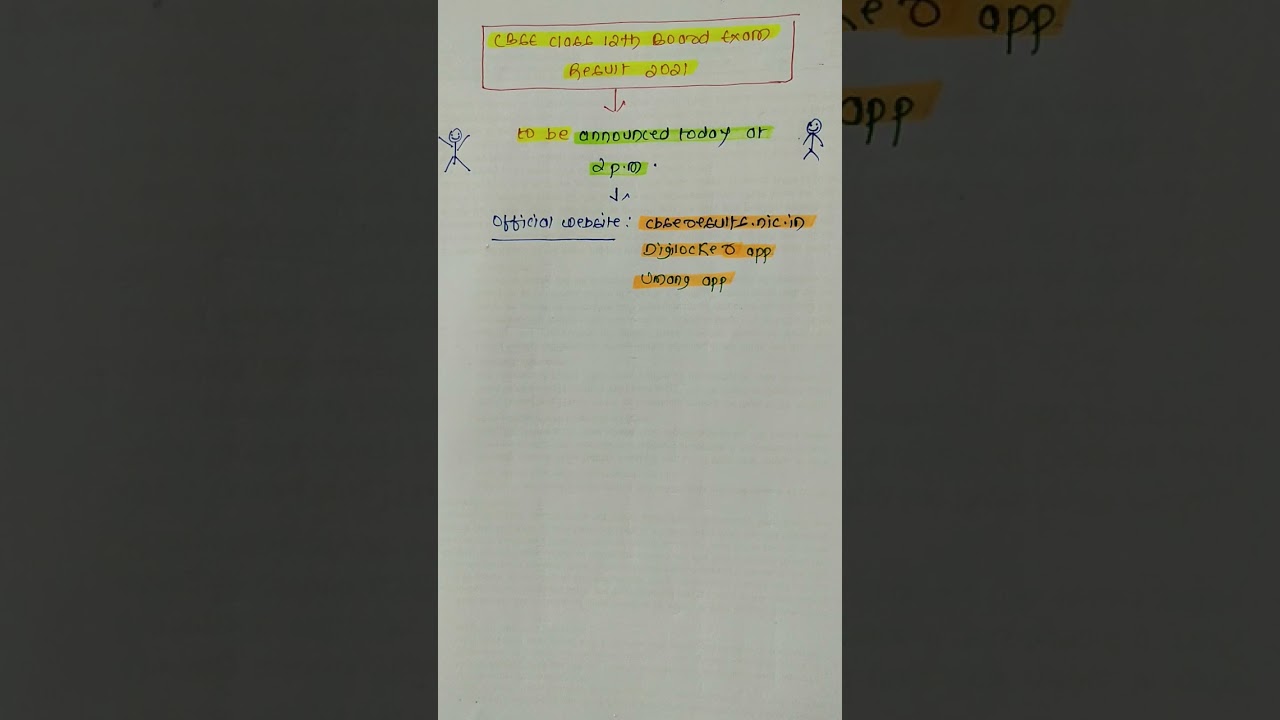 CBSE class 12th Board Exam
Result 2021
to be announced today at
2 p.m.
Official website : cbseresults.nic.in
Digilocker app
Umang app
ker app
app